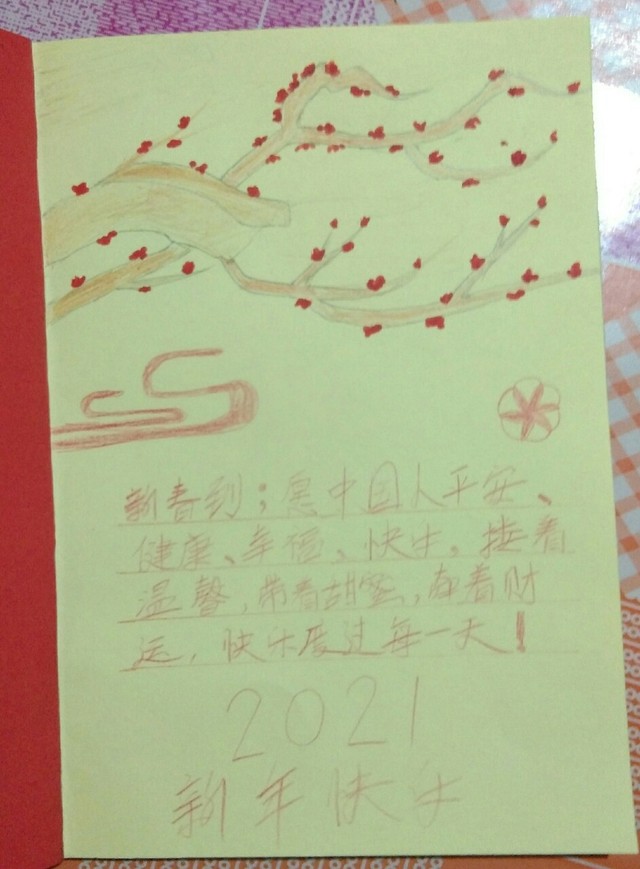 新春到；愿中国人平安、
健康、幸福、快乐。接着
温馨，带着甜蜜，牵着财
运，快乐度过每一天！
2021
新年快乐